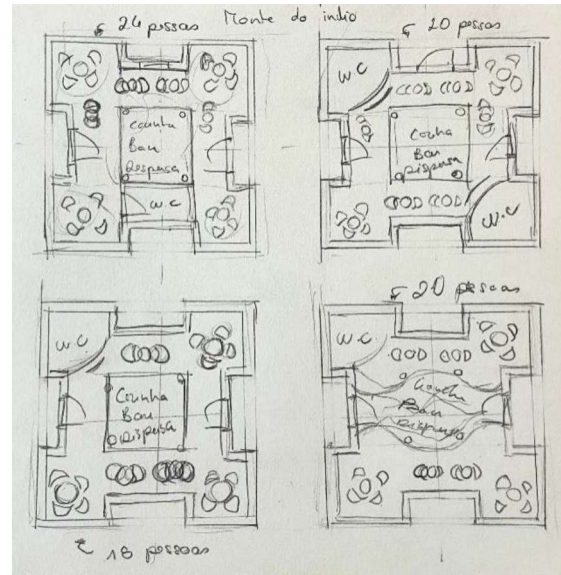 24 pessoas
Monte do indio
20 pessoas
cozinha
Bar
Despensa
W.C
W.C
Cozinha
Bar
Dispensa
W.C
WC
Cozinha
Bar
Dispensa
18 pessoas
20 pessoas
WC
Bar
Dispensa